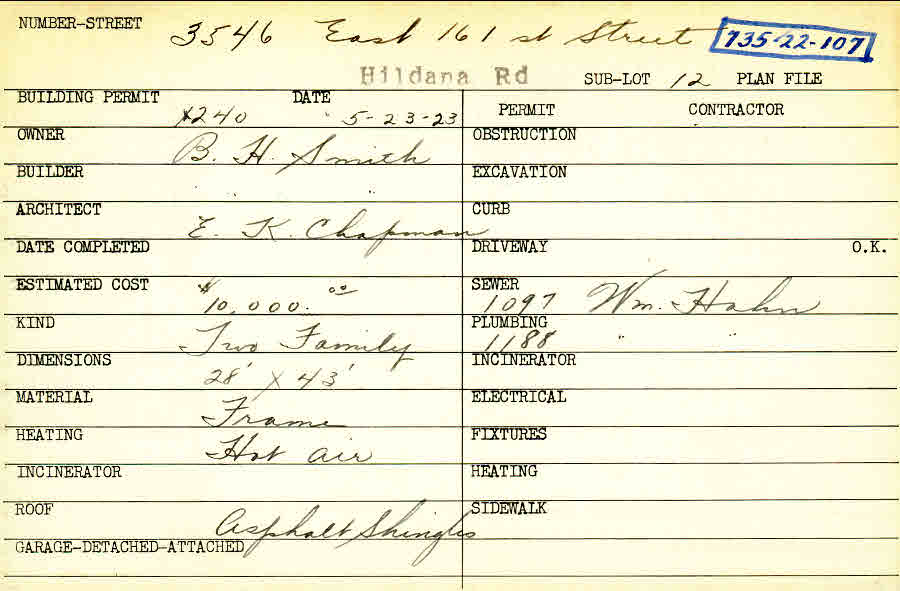 NUMBER-STREET 3546 East 161 st Street 735-22-107
Hildana Rd SUB-LOT 12 PLAN FILE
BUILDING PERMIT DATE PERMIT CONTRACTOR
X240 5-23-23
OWNER B. H. Smith OBSTRUCTION
BUILDER " " EXCAVATION
ARCHITECT E. K. Chapman CURB
DATE COMPLETED DRIVEWAY O.K.
ESTIMATED COST $10,000.00 SEWER 1097 Wm. Hahn
KIND Two Family PLUMBING 1188 " "
DIMENSIONS 28' X 43' INCINERATOR
MATERIAL Frame ELECTRICAL
HEATING Hot air FIXTURES
INCINERATOR HEATING
ROOF Asphalt Shingles SIDEWALK
GARAGE-DETACHED-ATTACHED